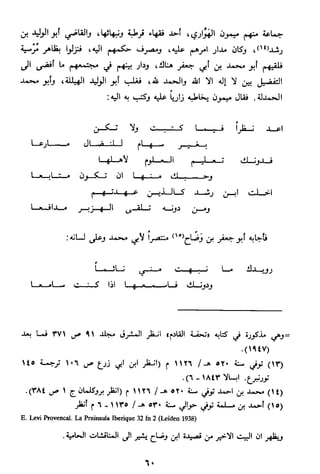 جماعة منهم ميمون الهواري، أحد فقهاء قرطبة ونبهائها، والقاضي أبو الوليد بن
رشد(١٤)، وكان مدار أمرهم عليه، ومصرف حكمهم إليه، فلزموا بظاهر مُرسيَة
فقيههم أبو محمد بن أبي جعفر هناك، ودار بينهم في مجتمعهم ما أفضى إلى
التفضيل بين لا إله إلا الله والحمد لله، فغلّب أبو الوليد الهيللة، وأبو محمد
الحمدلة. فقال ميمون يخاطبه زارياً عليه وكتب به إليه:
أعد نظراً فيما كتبت ولا تكن
بغير سهام للنضال مسارعا
فدونك تسليم العلوم لأهلها
وحسبك منها أن تكون متابعا
أخلت ابن رشد كالذين عهدتهم
ومن دونه تلقى الهزبر المدافعا
فأجابه أبو جعفر بن وضّاح(١٥) منتصراً لأبي محمد وعلى لسانه:
رويدك ما نبهت مني نائماً
ودونك فاسمعها إذا كنت سامعا
وهي مذكورة في كتاب «تحفة القادم» انظر المشرق مجلد ٩١ ص ٣٧١ فما بعد
(١٩٤٧).
(١٣) توفي سنة ٥٢٠ هـ / ١١٢٦ م (انظر ابن ابي زرع ص ١٠٦ وترجمة ١٤٥
١٨٤٣ - ٦).
(١٤) محمد بن احمد توفي سنة ٥٢٠ هـ / ١١٢٦ م (انظر بروكلمان ج ١ ص ٣٨٤).
(١٥) أحمد بن مسلمة توفي حوالي سنة ٥٣٠ هـ / ١١٣٥ - ٦ م انظر
E. Levi Provencal. La Peninsula Iberique 32 fn 2 (Leiden 1938)
ويظهر ان البيت الاخير من قصيدة ابن وضاح يشير الى المناقشات الحامية.
٦٠